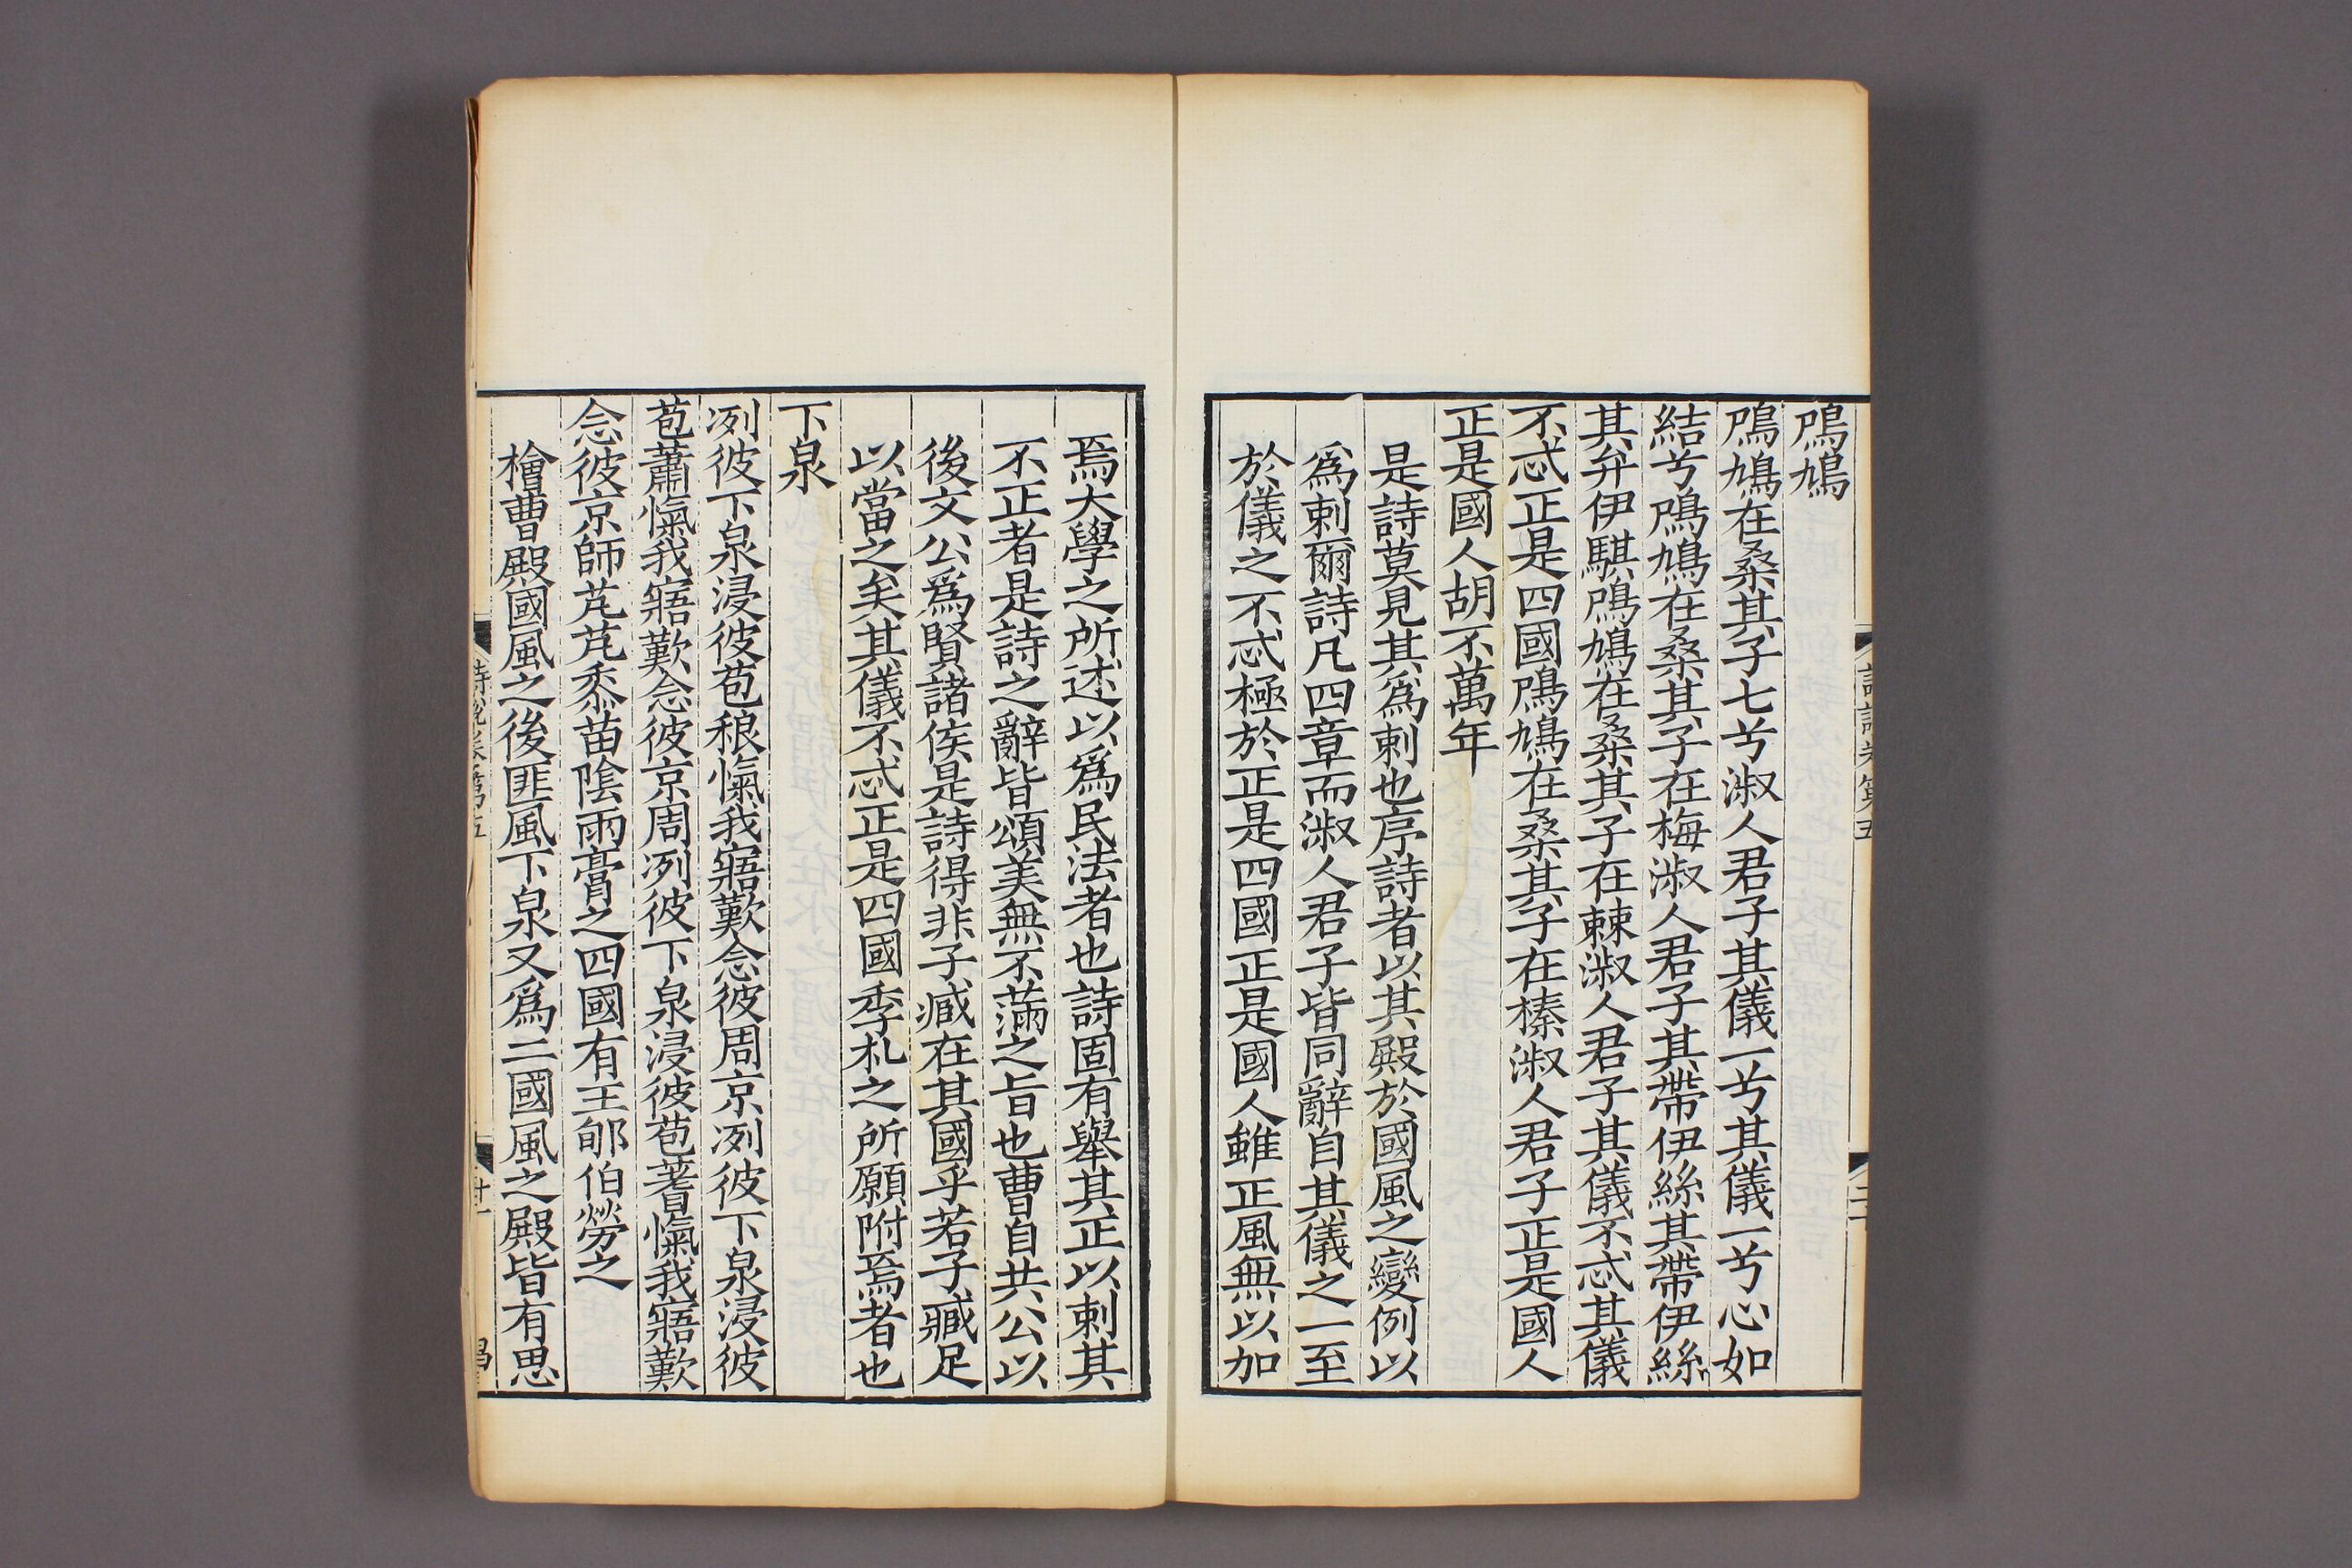 鳲鳩
鳲鳩在桑其子七兮淑人君子其儀一兮其儀一兮心如
結兮鳲鳩在桑其子在梅淑人君子其帶伊絲其帶伊絲
其弁伊騏鳲鳩在桑其子在棘淑人君子其儀不忒其儀
不忒正是四國鳲鳩在桑其子在榛淑人君子正是國人
正是國人胡不萬年
是詩莫見其爲刺也序詩者以其殿於國風之變例以
爲刺爾詩凡四章而淑人君子皆同辭自其儀之一至
於儀之不忒極於正是四國正是國人雖正風無以加
焉大學之所述以爲民法者也詩固有舉其正以刺其
不正者是詩之辭皆頌美無不滿之旨也曹自共公以
後文公爲賢諸侯是詩得非子臧在其國乎若子臧足
以當之矣其儀不忒正是四國季札之所願附焉者也
下泉
冽彼下泉浸彼苞稂愾我寤歎念彼周京冽彼下泉浸彼
苞蕭愾我寤歎念彼京周冽彼下泉浸彼苞蓍愾我寤歎
念彼京師芃芃黍苗陰雨膏之四國有王郇伯勞之
檜曹殿國風之後匪風下泉又爲二國風之殿皆有思
詩說卷第五